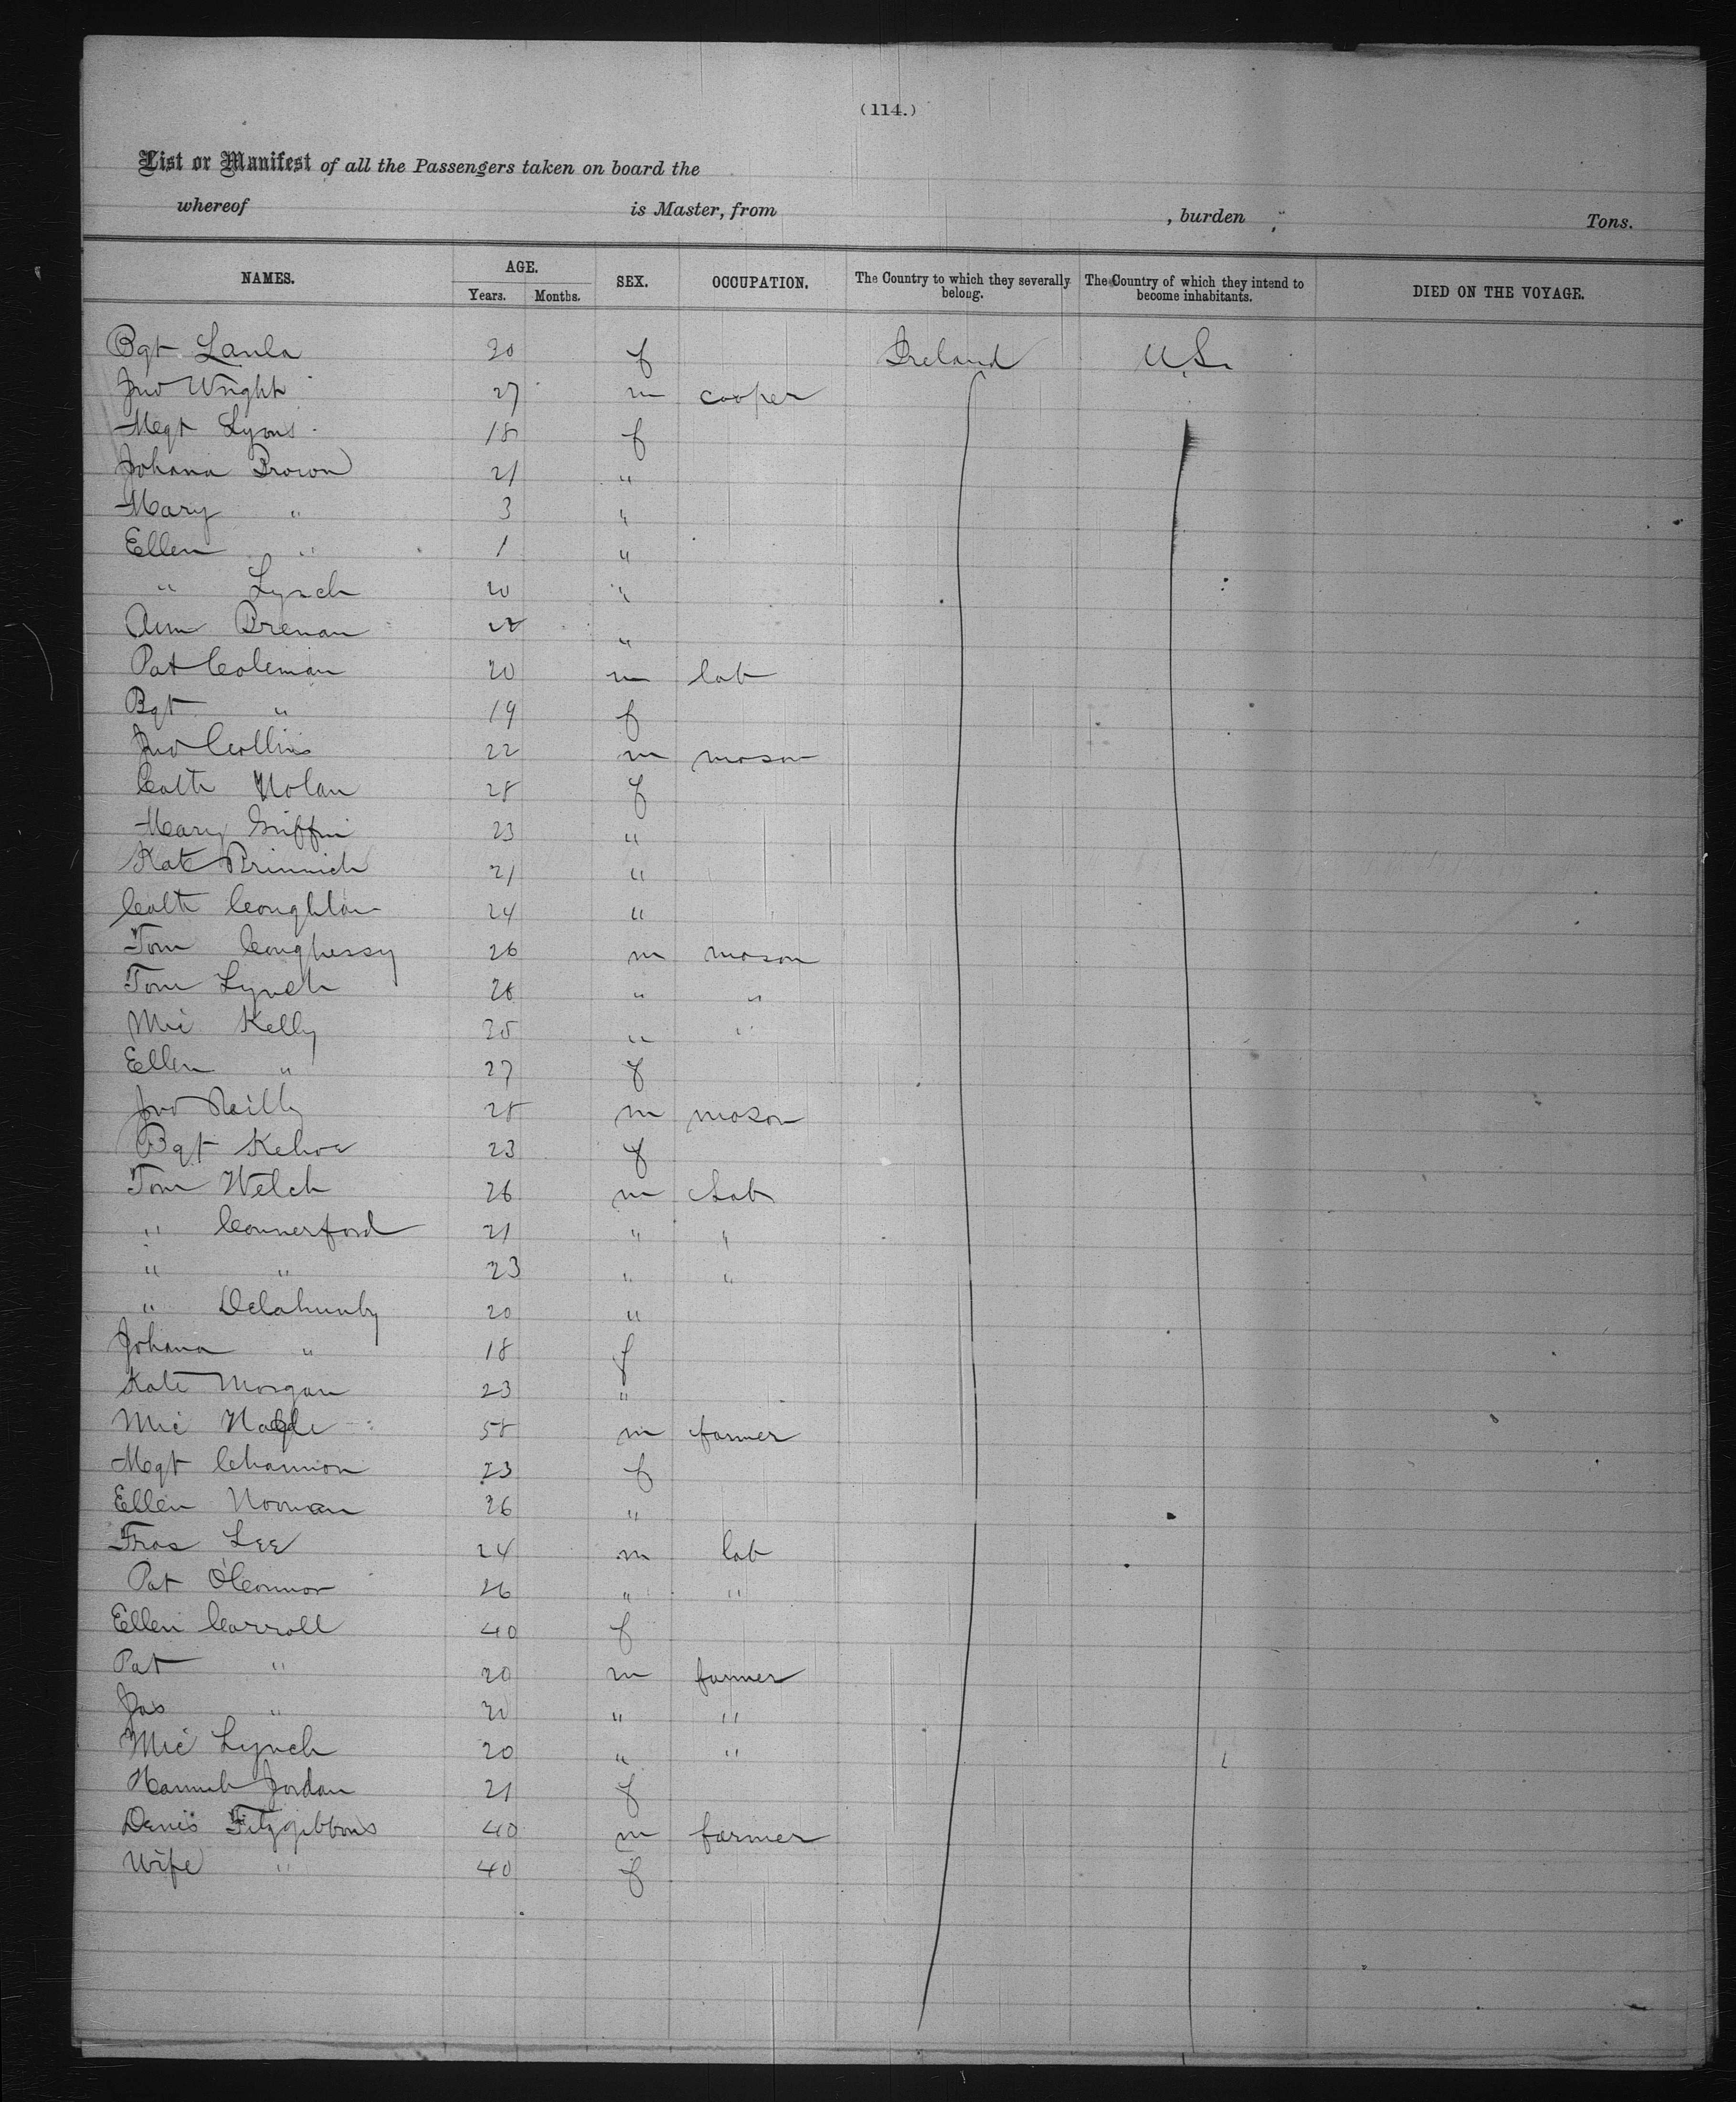 (114.)
List or Manifest of all the Passengers taken on board the
whereof is Master, from , burden Tons.
NAMES. AGE. Years. Months. SEX. OCCUPATION. The Country to which they severally belong. The Country of which they intend to become inhabitants. DIED ON THE VOYAGE.
Bgt 20 f Ireland U.S.
Jno Wright 27 m cooper
Mgt Lyons 18 f
Johana Brown 21 "
Mary " 3 "
Ellen " 1 "
" Lynch 20 "
Ann Brenan "
Pat Coleman 20 m lab
Bgt " 19 f
Jno Collins 22 m mason
Cath Nolan 28 f
Mary Griffin 23 "
Kate 21 "
Cath Coughlan 24 "
Tom Coughessy 26 m mason
Tom Lynch 26 " "
Mic Kelly " "
Ellen " 27 f
Jno Reilly 28 m mason
Bgt Kehoe 23 f
Tom Welch 26 m lab
" Connerford 21 " "
" " 23 " "
" Delahunty 20 "
Johana " 18 f
Kate Morgan 23 "
Mic Nagle 58 m farmer
Mgt Channon 23 f
Ellen Noonan 26 "
Thos Lee 24 m lab
Pat O'Connor 26 " "
Ellen Carroll 40 f
Pat " 20 m farmer
Jas " 20 " "
Mic Lynch 20 " "
Hannah Jordan 21 f
Denis Fitzgibbons 40 m farmer
Wife " 40 f